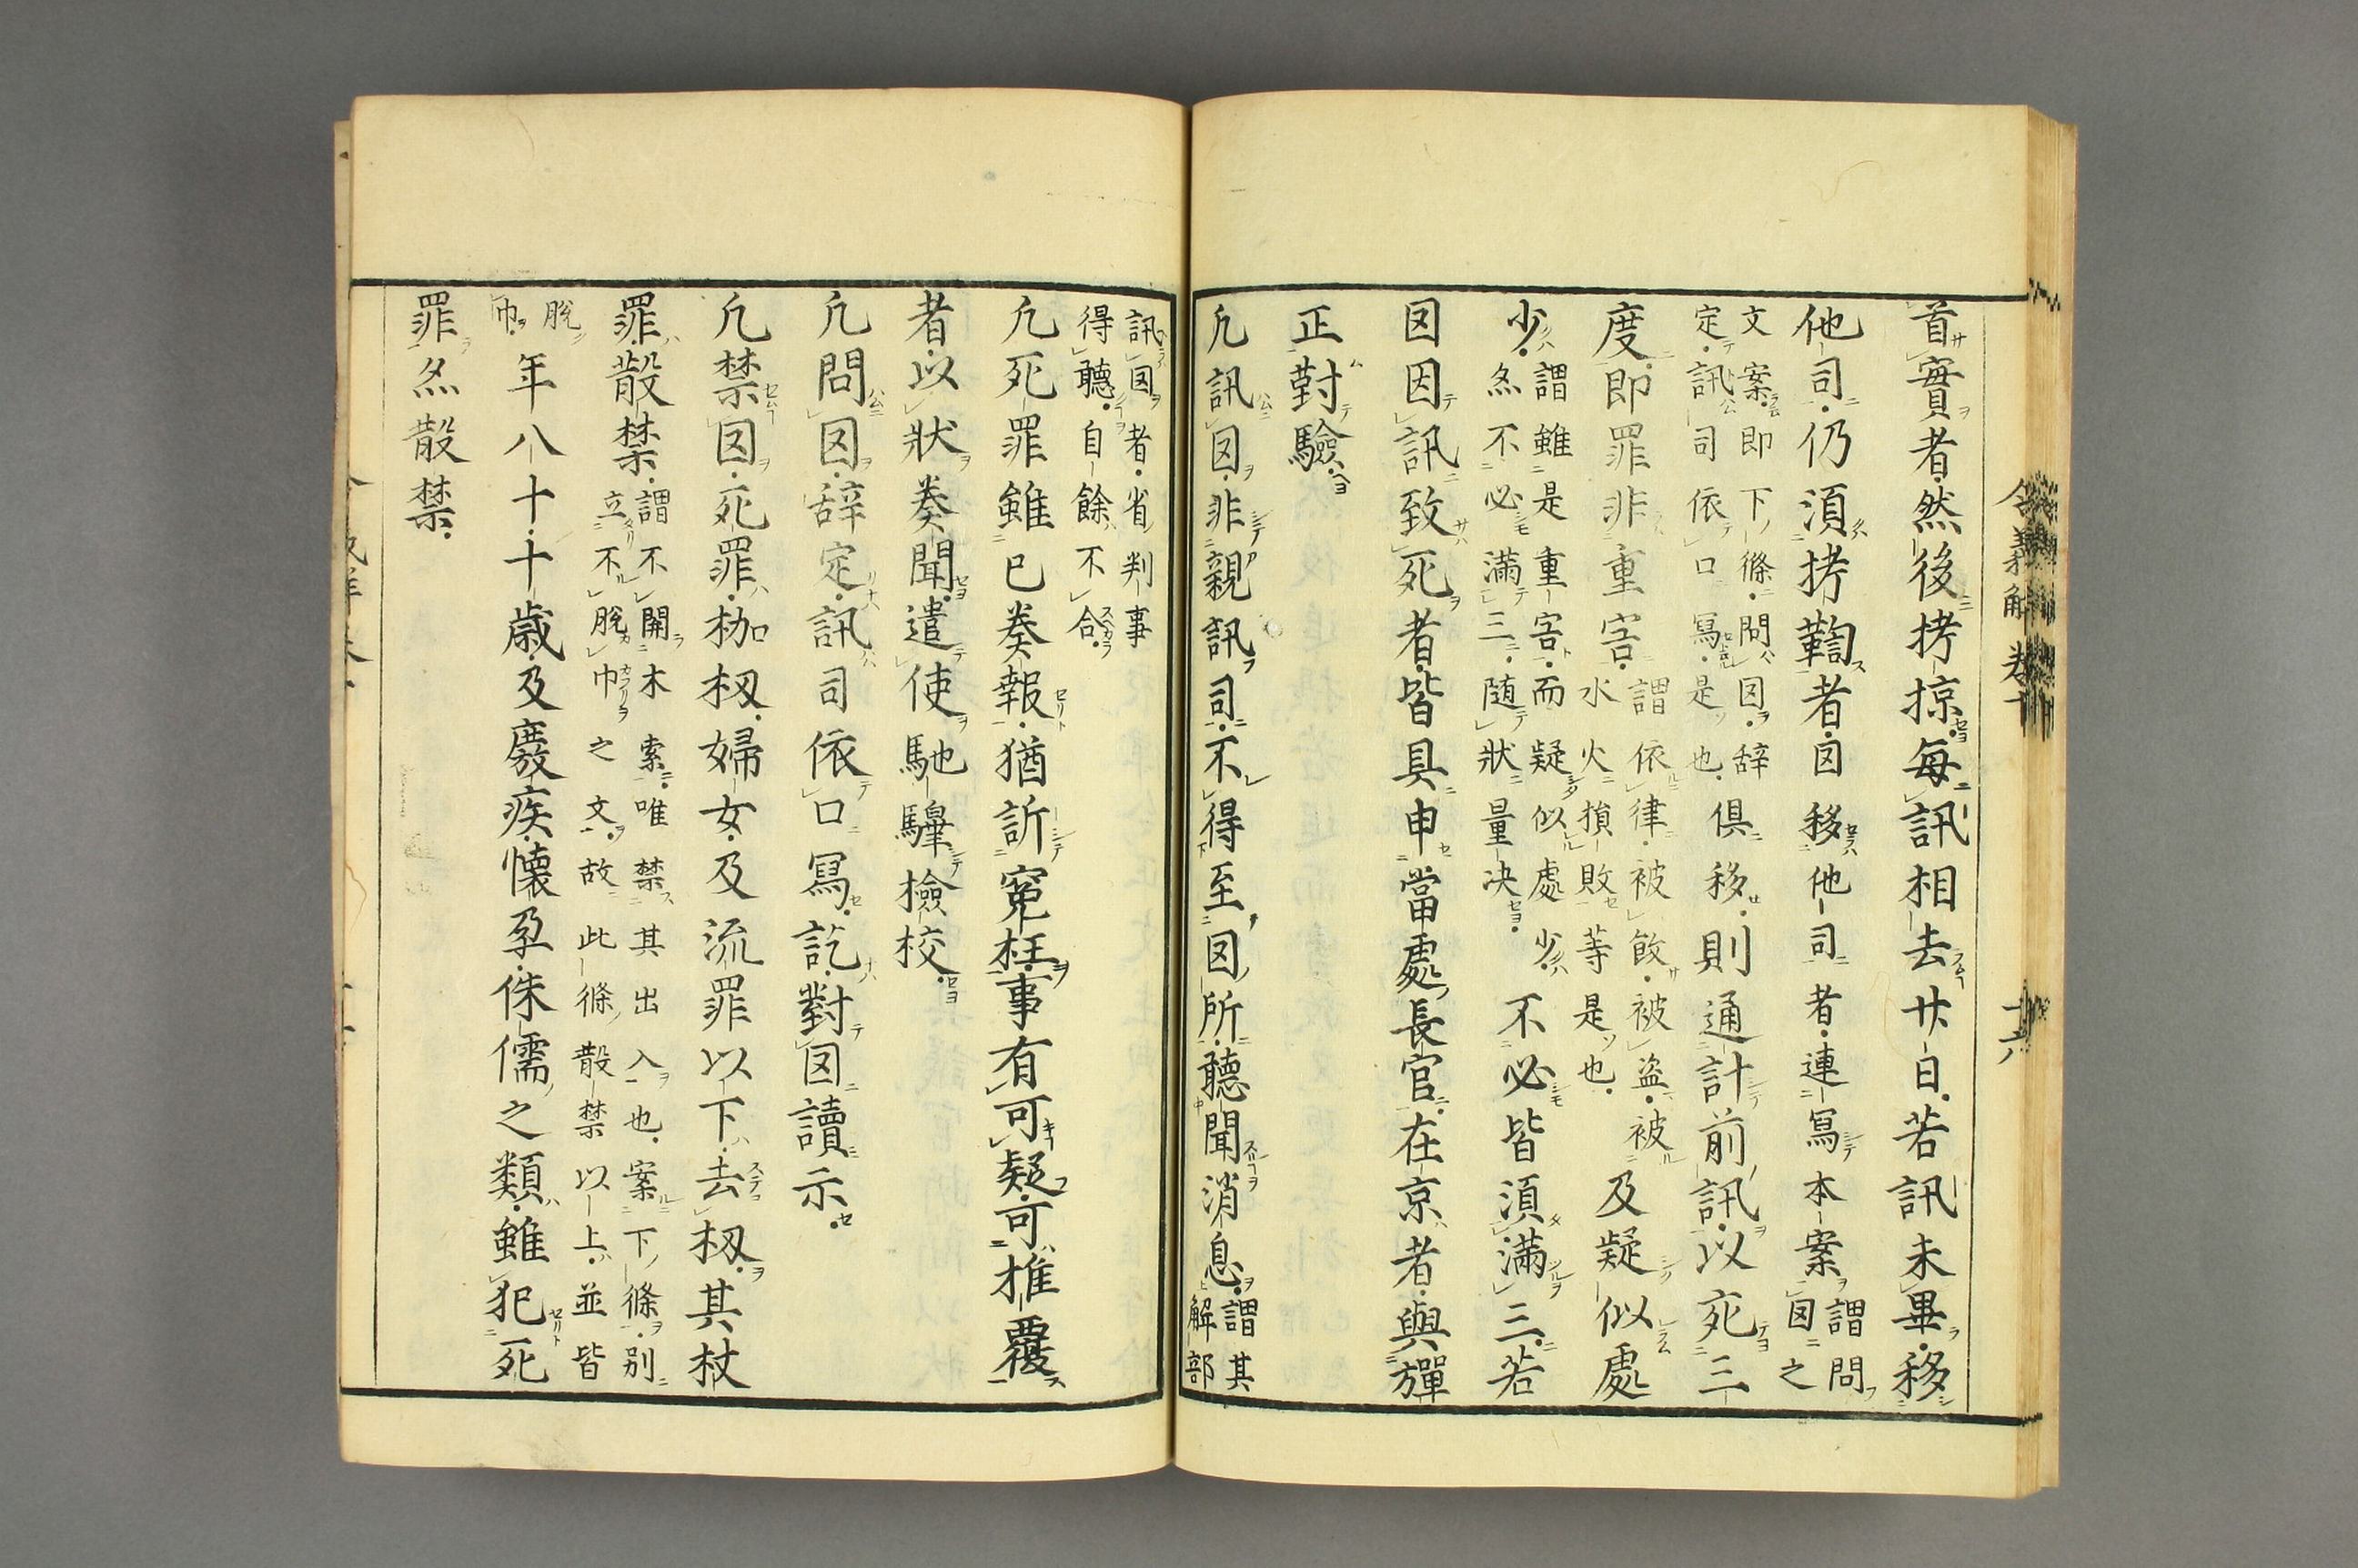 令義解 卷十
十六
首實者然後拷掠每訊相去廿日若訊未畢移
他司仍須拷鞫者囚移他司者連寫本案謂問囚之
文案即下條問囚辞定訊司依口寫是也俱移則通計前訊以死三
度即罪非重害謂依律被飲被盗被水火損敗等是也及疑似處
少謂雖是重害而疑似處少尒不必滿三随狀量决不必皆須滿三若
囚因訊致死者皆具申當處長官在京者與彈
正對驗
凢訊囚非親訊司不得至囚所聽聞消息謂其解部
訊囚者省判事得聽自餘不合
凢死罪雖已奏報猶訴寃枉事有可疑可推覆
者以狀奏聞遣使馳驛檢校
凢問囚辞定訊司依口寫訖對囚讀示
凢禁囚死罪枷杻婦女及流罪以下去杻其杖
罪散禁謂不開木索唯禁其出入也案下條別立不脫巾之文故此條散禁以上並皆
脫巾年八十十歳及廢疾懷孕侏儒之類雖犯死
罪尒散禁